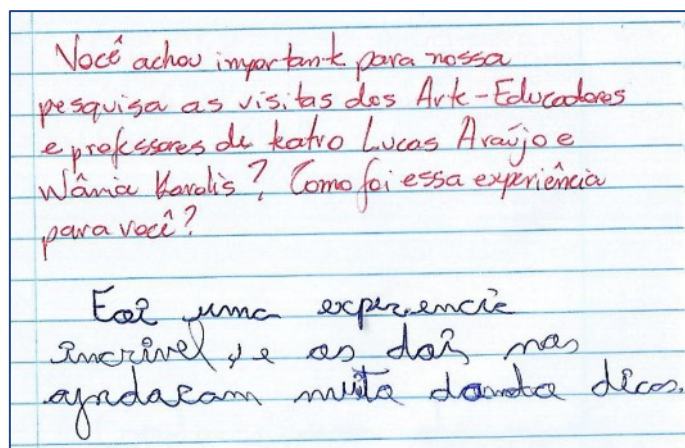 Você achou importante para nossa
pesquisa as visitas dos Arte-Educadores
e professores de teatro Lucas Araújo e
Wânia Karolis? Como foi essa experiência
para você?
Foi uma experiencia
incrivel, e os dois nos
ajudaram muito dando dicas.